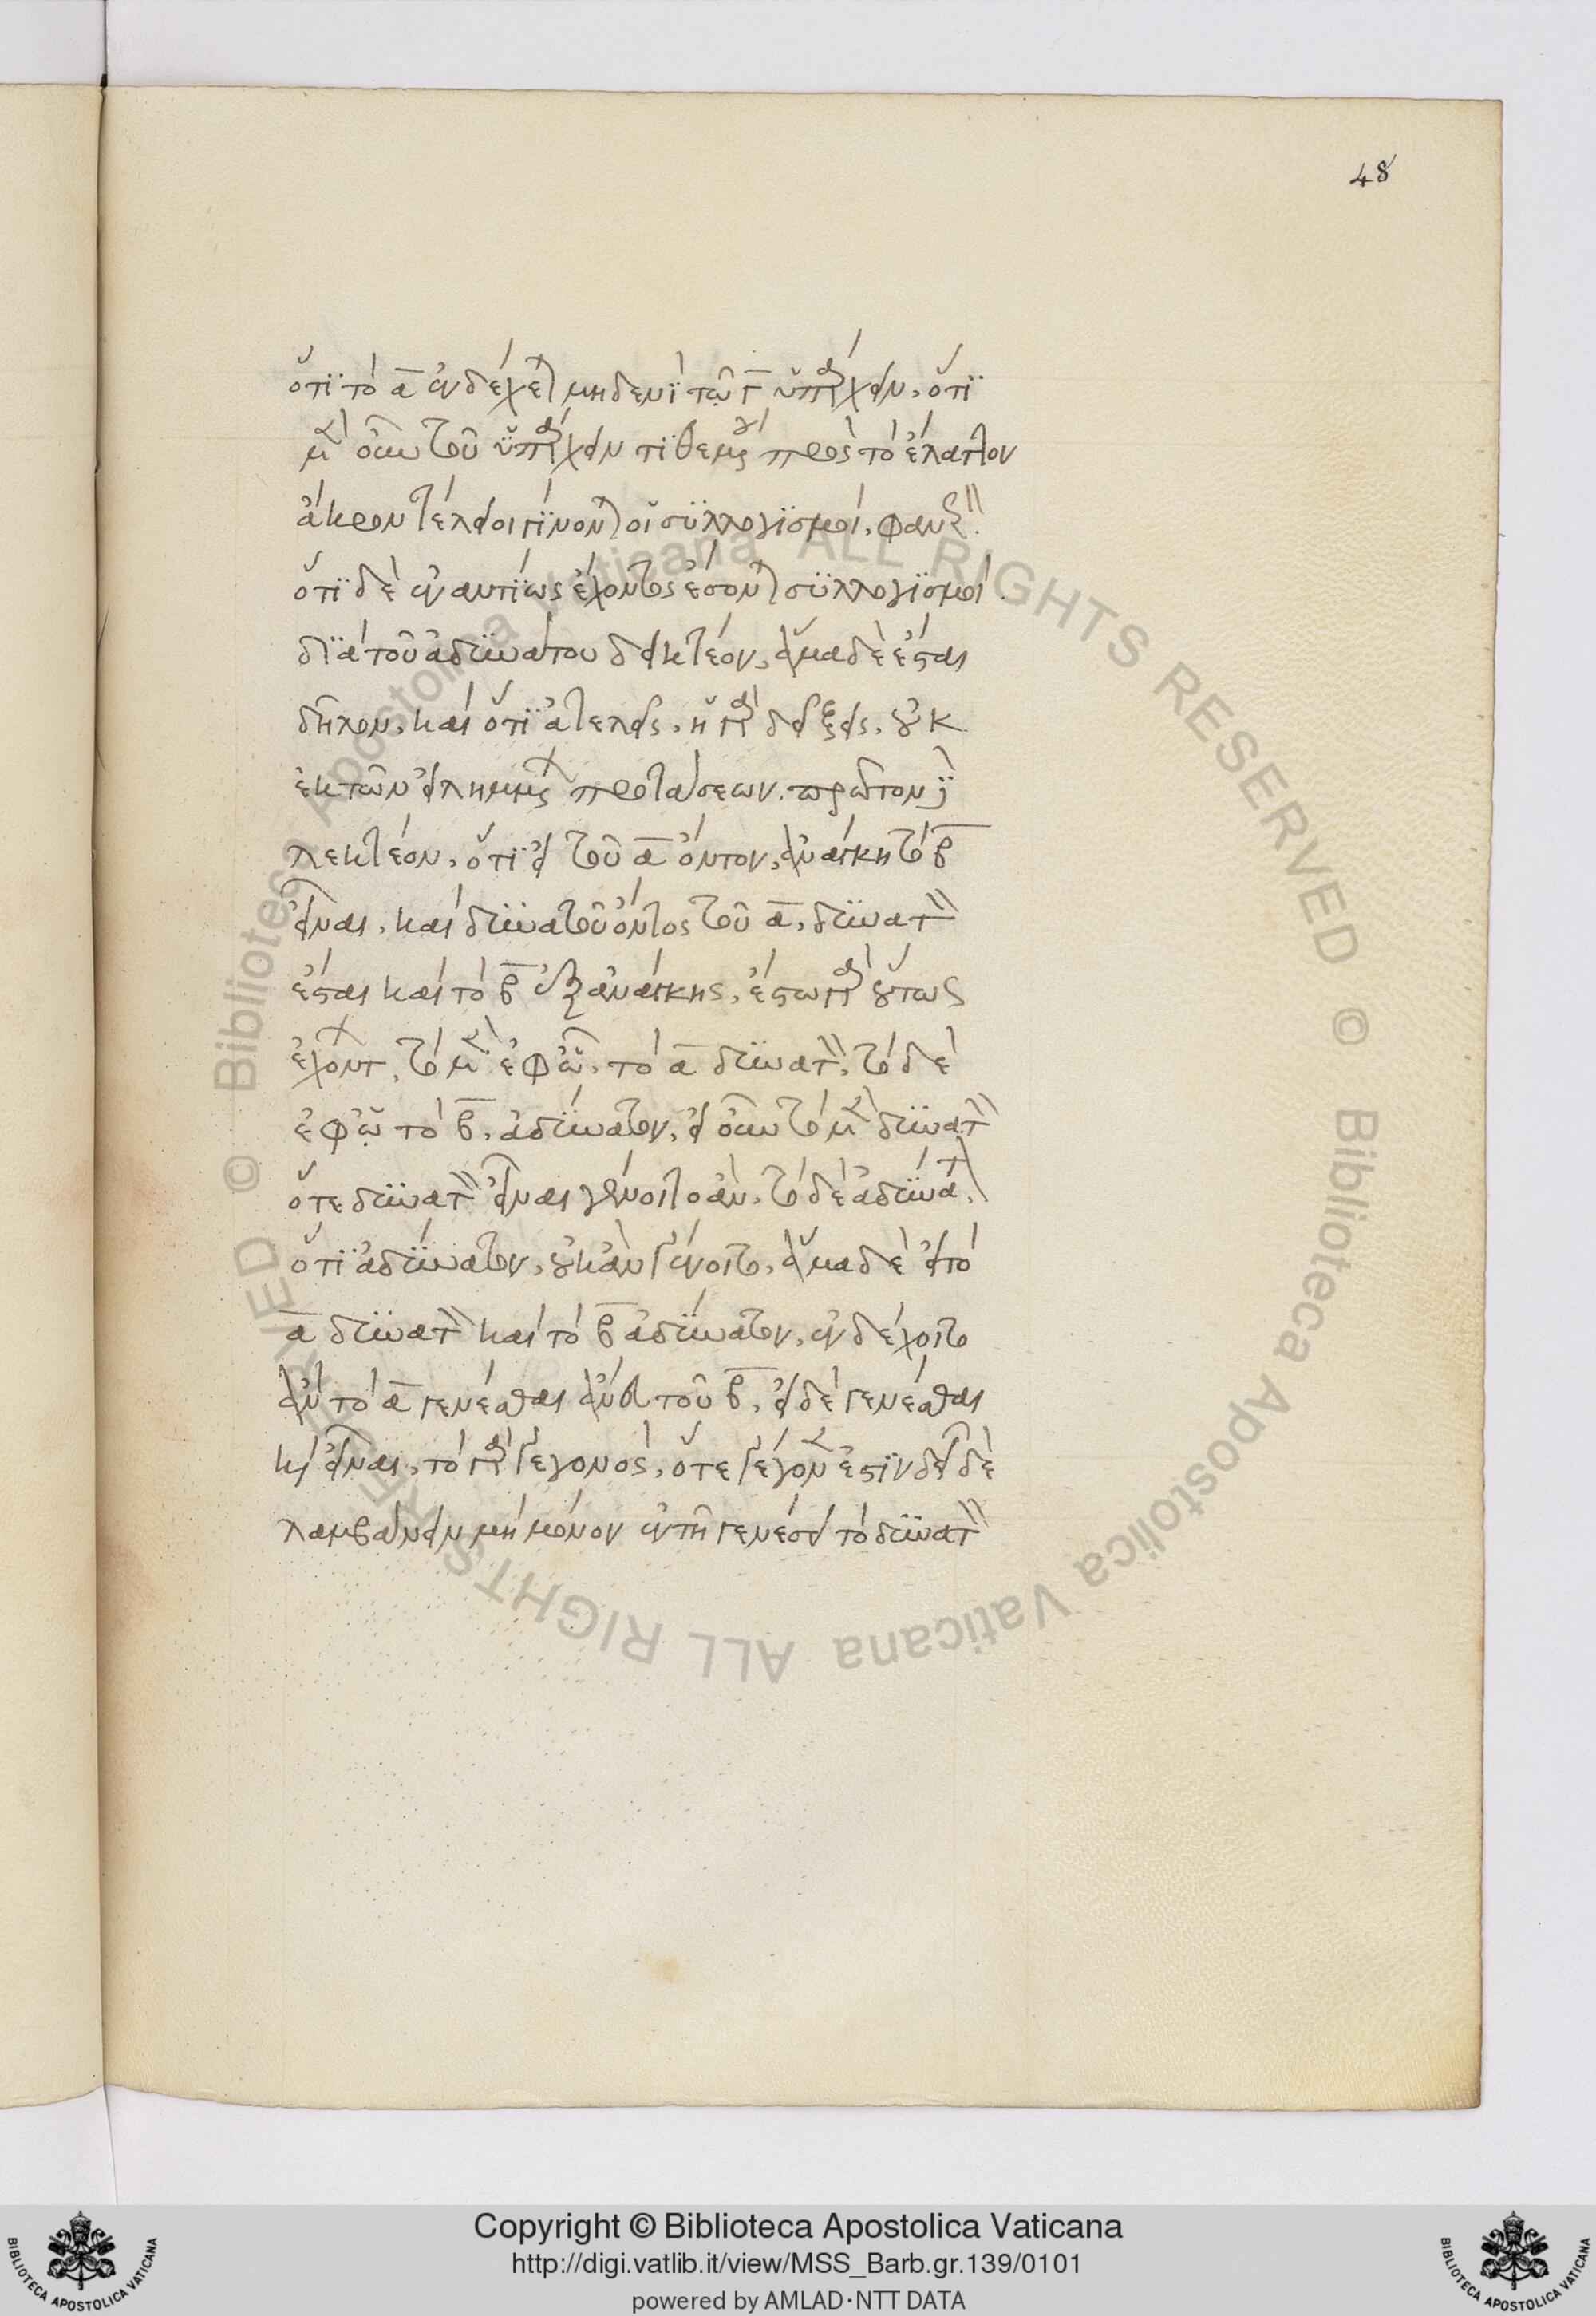 48
ὅτι τὸ α ἐνδέχεται μηδενὶ τῷ Γ ὑπάρχειν, ὅτι
μὲν οὖν τοῦ ὑπάρχειν τιθεμένης πρὸς τὸ ἔλαττον
ἄκρον τέλειοι γίνονται οἱ συλλογισμοί, φανερόν.
ὅτι δὲ ἐναντίως ἔχοντος ἔσονται συλλογισμοί.
διὰ τοῦ ἀδυνάτου δεικτέον, ἅμα δὲ ἔσται
δῆλον, καὶ ὅτι ἀτελεῖς, ἡ γὰρ δεῖξις, οὐκ
ἐκ τῶν εἰλημμένων προτάσεων. πρῶτον δὲ
λεκτέον, ὅτι εἰ τοῦ α ὄντος, ἀνάγκη τὸ β
εἶναι, καὶ δυνατοῦ ὄντος τοῦ α, δυνατὸν
ἔσται καὶ τὸ β ἐξ ἀνάγκης, ἔστω γὰρ οὕτως
ἐχόντων, τὸ μὲν ἐφ ᾧ, τὸ α δυνατόν, τὸ δὲ
ἐφ ᾧ τὸ β, ἀδύνατον, εἰ οὖν τὸ μὲν δυνατὸν
ὅτε δυνατὸν εἶναι γένοιτο ἄν, τὸ δὲ ἀδύνατον,
ὅτι ἀδύνατον, οὐκ ἂν γένοιτο, ἅμα δὲ εἰ τὸ
α δυνατὸν καὶ τὸ β ἀδύνατον, ἐνδέχοιτο
ἂν τὸ α γενέσθαι ἄνευ τοῦ β, εἰ δὲ γενέσθαι
καὶ εἶναι, τὸ γὰρ γεγονός, ὅτε γέγονεν ἔστιν δεῖ δὲ
λαμβάνειν μὴ μόνον ἐν τῇ γενέσει τὸ δυνατὸν
Copyright © Biblioteca Apostolica Vaticana
http://digi.vatlib.it/view/MSS_Barb.gr.139/0101
powered by AMLAD·NTT DATA